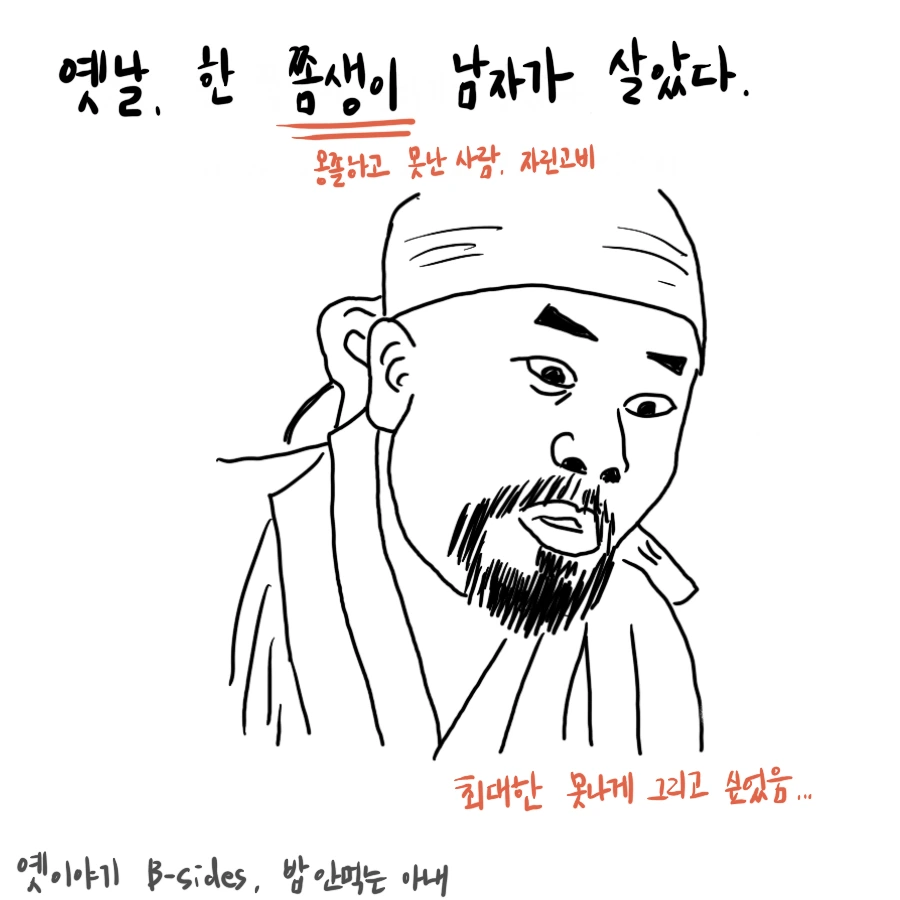 옛날, 한 쫌생이 남자가 살았다.
옹졸하고 못난 사람, 자린고비
최대한 못나게 그리고 싶었음...
옛이야기 B-sides, 밥 안먹는 아내